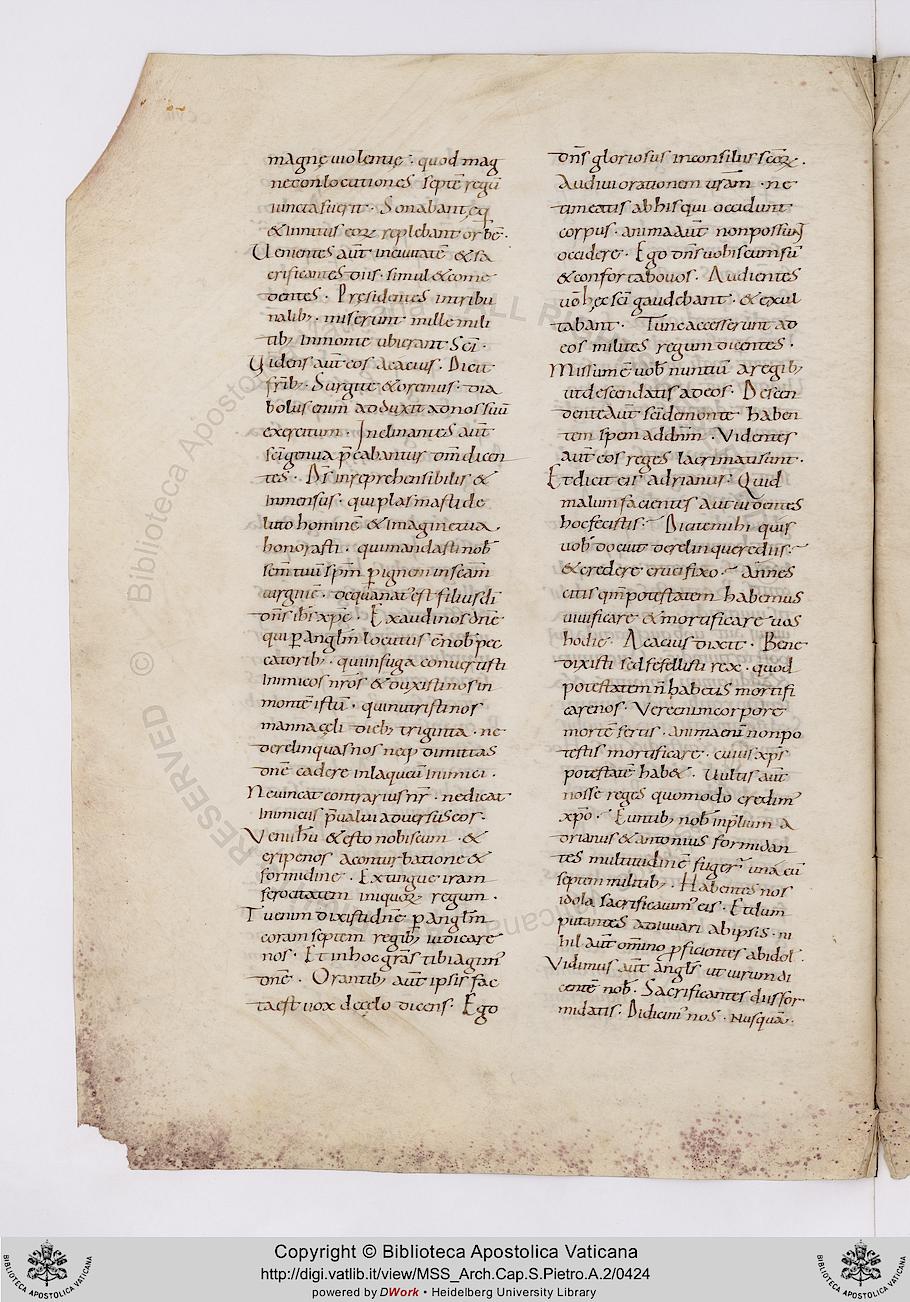 magnę uiolentię · quod mag
ne conlocutiones septē regū
iuncta fuerit · Sonabant
& innitus eoꝝ replebant orbē ·
Uenientes aut̄ inciuitatē & sa
crificantes diis · simul & come
dentes · Pręsidentes intribu
nalib; · miserunt mille mili
tib; Inmonte ubi erant Sc̄i ·
Uidens aut̄ eos acacius · Dicit
fr̄ib; · Surgite & oremus · dia
bolus enim̄ adduxit ad nos suū
exercitum · Inclinantes aut̄
sc̄i genua p̄cabantur dn̄m dicen
tes · Ds̄ inreprehensibilis &
Inmensus · qui plasmasti de
luto hominē & imagine tua ·
honorasti · qui mandasti nob̄
sēm tuū sp̄m pignon inscām
uirginē · dequa natꝰ est filius dī
dn̄s ih̄s xp̄c · Exaudi nos dn̄e
qui p̄ angl̄m locutus ē nob̄ pec
catorib; · qui infuga conuertisti
Inimicos nr̄os & duxisti nos in
montē istū · qui nutristi nos
manna cęli dieb; triginta · ne
derelinquas nos neq; dimittas
dn̄e cadere inlaqueū inimici ·
Ne uincat contrarius nr̄ · ne dicat
Inimicus p̄ualui aduersus eos ·
Veni ih̄u & esto nobiscum · &
eripe nos aconturbatione &
formidine · Extingue iram
ferocitatem iniquoꝝ regum ·
Tu enim dixisti dn̄e p̄ angl̄m
coram septem regib; iudicare
nos · Et in hoc grās tibi agimꝰ
dn̄e · Orantib; aut̄ ipsis fac
ta est uox dę cęlo dicens · Ego
dn̄s gloriosus inconsiliis sc̄oꝝ ·
Audiui orationem ur̄am · ne
timeatis ab his qui occidunt
corpus · anima aut̄ non possunt
occidere · Ego dn̄s uobiscum sū
& confortabo uos · Audientes
uō hęc sc̄i gaudebant · & exul
tabant · Tunc accesserunt ad
eos milites regum dicentes ·
Missum ē uob̄ nuntiū aregib;
ut descendatis ad eos · Descen
dente aut̄ sc̄i demonte haben
tem spem ad dn̄m · Videntes
aut̄ eos reges lacrimati sunt ·
Et dicit eis adrianus · Quid
malum facientes aut uidentes
hoc fecistis · Dicite mihi quis
uob̄ docuit derelinquere diis ·
& credere crucifixo · Annes
citis qm̄ potestatem habemus
uiuificare & mortificare uos
hodie · Acacius dixit · Bene
dixisti sed fefellisti rex · quod
potestatem n̄ habetis mortifi
care nos · Vere enim corpore
mortē fertis · animā enī non po
testis mortificare · cuius xp̄s
potestatē hab& · Uultis aut̄
nosse reges quomodo credimꝰ
xp̄o · Euntib; nob̄ inp̄lium a
drianus & antonius formidan
tes multitudinē fuger̄ una cū
septem militib; · Habentes nos
idola sacrificauimꝰ eis · Et dum
putantes adiuuari ab ipsis · ni
hil aut̄ omnino p̄ficientes ab idol̄ ·
Vidimus aut̄ angl̄s ut uirum di
centē nob̄ · Sacrificantes diis for
midatis · Didicimꝰ nos · nusquā ·
Copyright © Biblioteca Apostolica Vaticana
http://digi.vatlib.it/view/MSS_Arch.Cap.S.Pietro.A.2/0424
powered by DWork • Heidelberg University Library